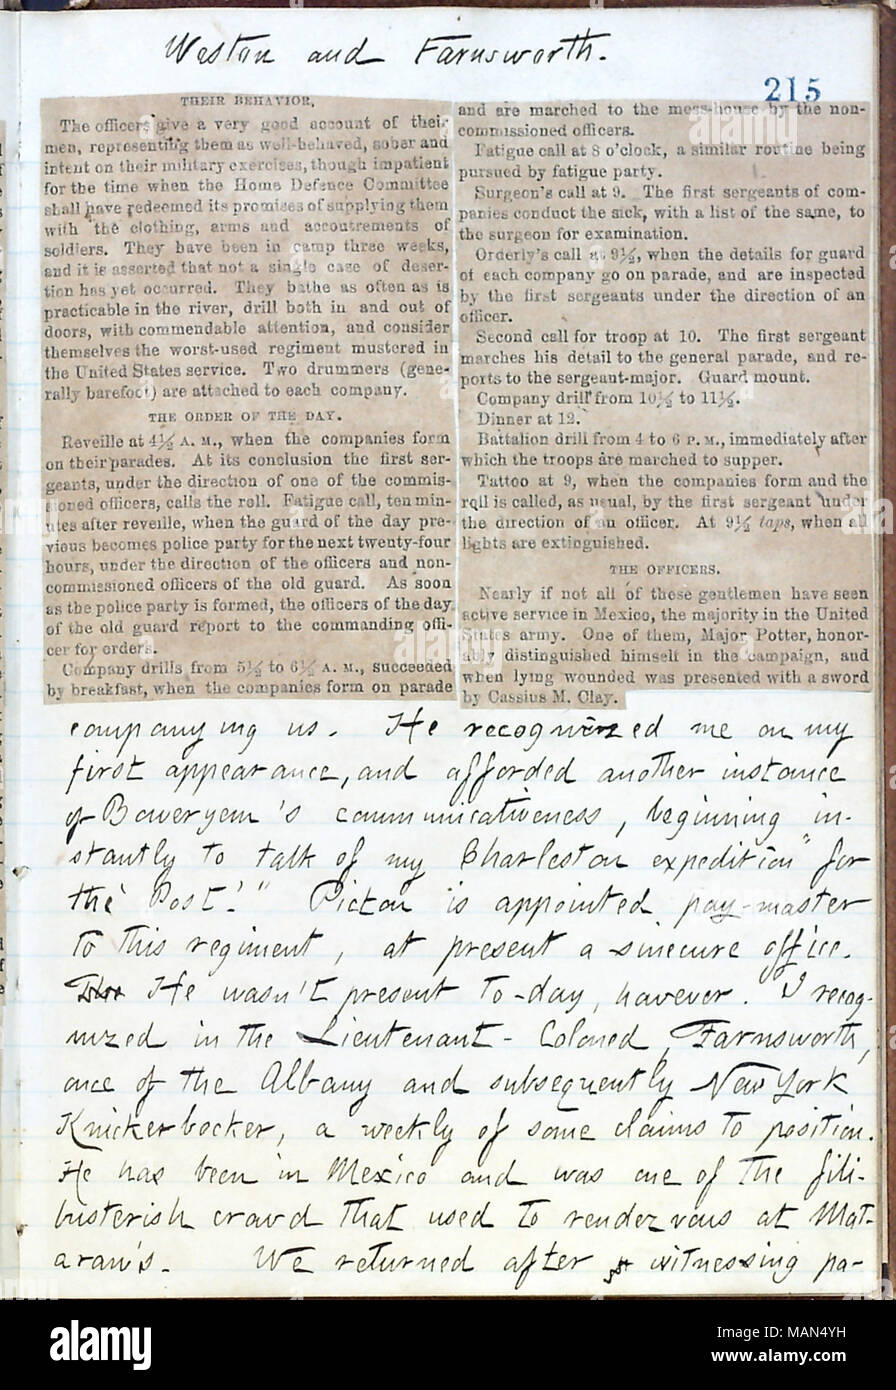 Weston and Farnsworth.
215
THEIR BEHAVIOR.
The officers give a very good account of their
men, representing them as well-behaved, sober and
intent on their military exercises, though impatient
for the time when the Home Defence Committee
shall have redeemed its promises of supplying them
with the clothing, arms and accoutrements of
soldiers. They have been in camp three weeks,
and it is asserted that not a single case of deser-
tion has yet occurred. They bathe as often as is
practicable in the river, drill both in and out of
doors, with commendable attention, and consider
themselves the worst-used regiment mustered in
the United States service. Two drummers (gene-
rally barefoot) are attached to each company.
THE ORDER OF THE DAY.
Reveille at 4½ A. M., when the companies form
on their parades. At its conclusion the first ser-
geants, under the direction of one of the commis-
sioned officers, calls the roll. Fatigue call, ten min-
utes after reveille, when the guard of the day pre-
vious becomes police party for the next twenty-four
hours, under the direction of the officers and non-
commissioned officers of the old guard. As soon
as the police party is formed, the officers of the day
of the old guard report to the commanding offi-
cer for orders.
Company drills from 5½ to 6½ A. M., succeeded
by breakfast, when the companies form on parade
and are marched to the mess-house by the non-
commissioned officers.
Fatigue call at 8 o'clock, a similar routine being
pursued by fatigue party.
Surgeon's call at 9. The first sergeants of com-
panies conduct the sick, with a list of the same, to
the surgeon for examination.
Orderly's call at 9½, when the details for guard
of each company go on parade, and are inspected
by the first sergeants under the direction of an
officer.
Second call for troop at 10. The first sergeant
marches his detail to the general parade, and re-
ports to the sergeant-major. Guard mount.
Company drill from 10½ to 11½.
Dinner at 12.
Battalion drill from 4 to 6 P. M., immediately after
which the troops are marched to supper.
Tattoo at 9, when the companies form and the
roll is called, as usual, by the first sergeant under
the direction of an officer. At 9½ taps, when all
lights are extinguished.
THE OFFICERS.
Nearly if not all of those gentlemen have seen
active service in Mexico, the majority in the United
States army. One of them, Major Potter, honor-
ably distinguished himself in the campaign, and
when lying wounded was presented with a sword
by Cassius M. Clay.
companying us. He recognized me on my
first appearance, and afforded another instance
of Boweryem's communicativeness, beginning in-
stantly to talk of my Charleston expedition "for
the 'Post'." Picton is appointed pay-master
to this regiment, at present a sinecure office.
He wasn't present to-day, however. I recog-
nized in the Lieutenant-Coloned, Farnsworth,
once of the Albany and subsequently New York
Knickerbocker, a weekly of some claims to position.
He has been in Mexico and was one of the fili-
busterish crowd that used to rendezvous at Mat-
aran's. We returned after witnessing pa-
alamy
Image ID: MAN4YH
www.alamy.com